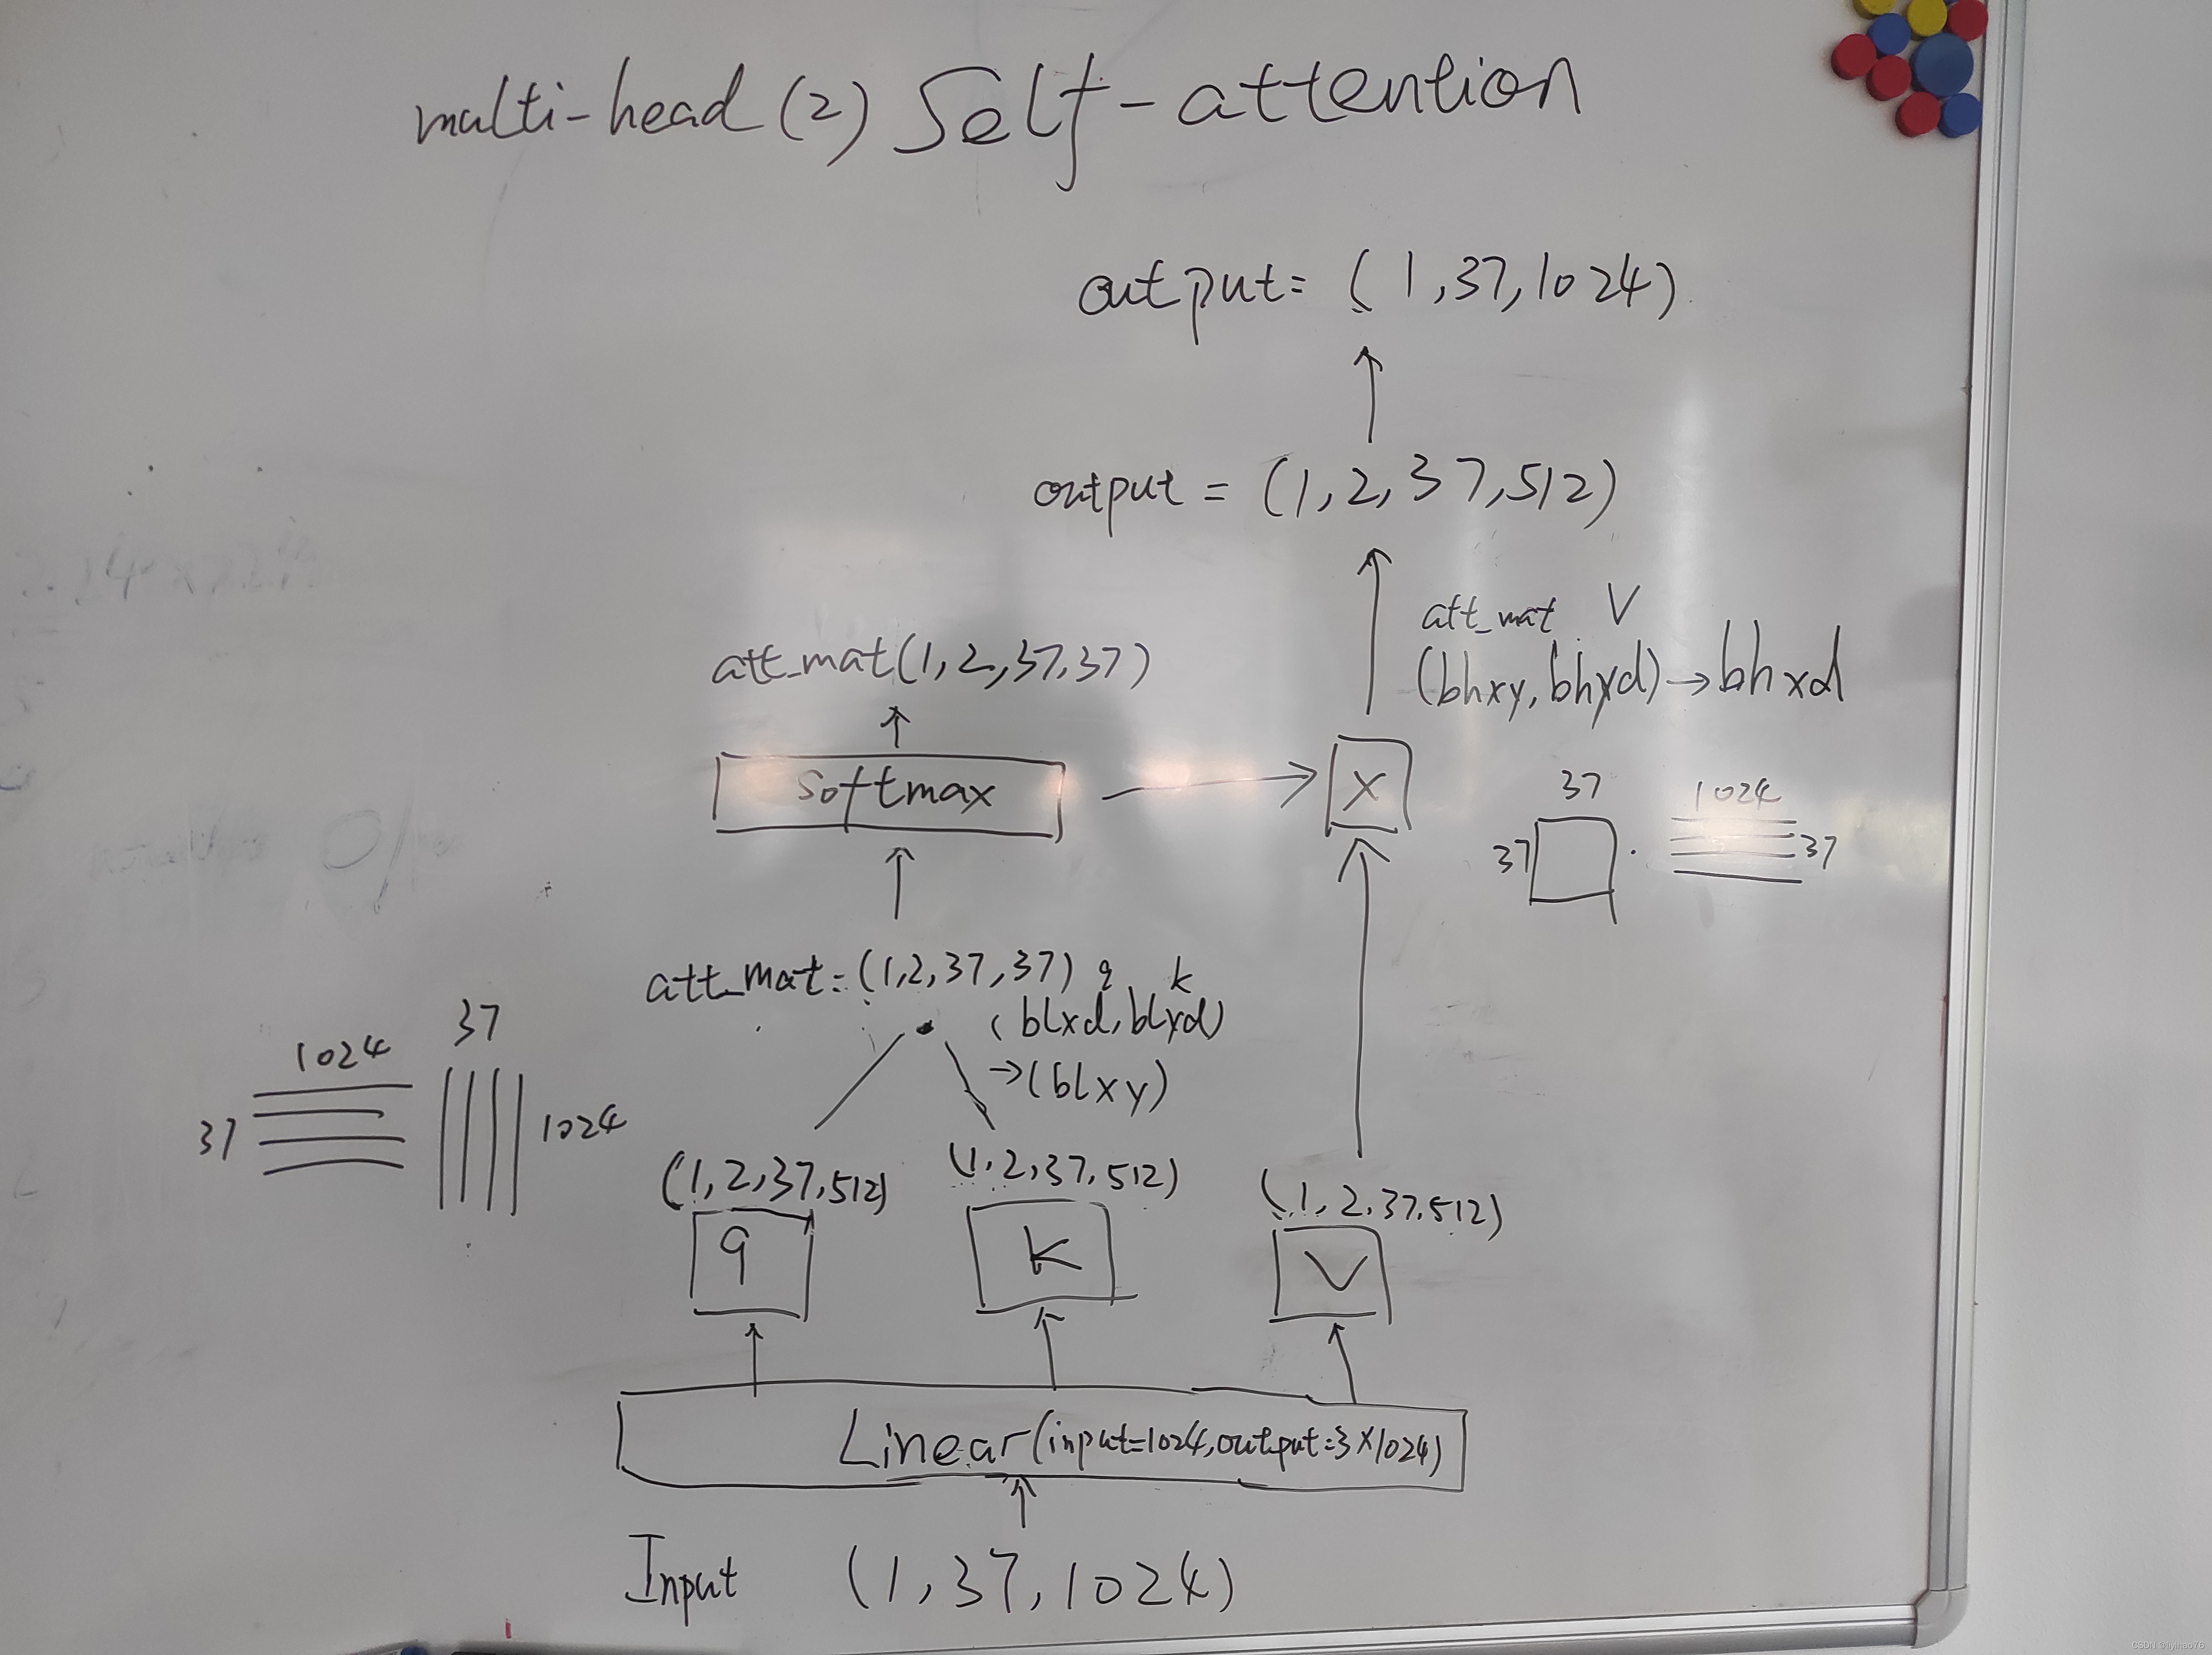 multi-head (2) Self-attention
output = (1,37,1024)
output = (1,2,37,512)
att_mat V
(bhxy, bhyd) → bhxd
att_mat(1,2,37,37)
softmax
X
37
1024
37
37
att_mat = (1,2,37,37)
q k
(blxd, blyd)
→ (blxy)
37
1024
37
1024
(1,2,37,512)
(1,2,37,512)
(1,2,37,512)
q
k
V
Linear(input=1024, output=3X1024)
Input (1,37,1024)